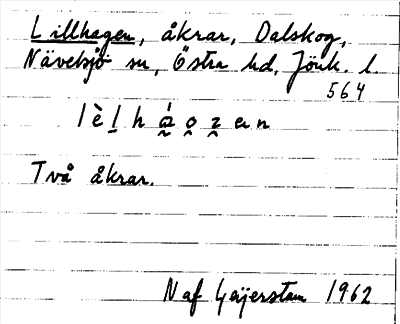 Lillhagen, åkrar, Dalskog,
Nävelsjö sn, Östra hd, Jönk. l.
564
lèlháozen
Två åkrar.
N af Geijerstam 1962